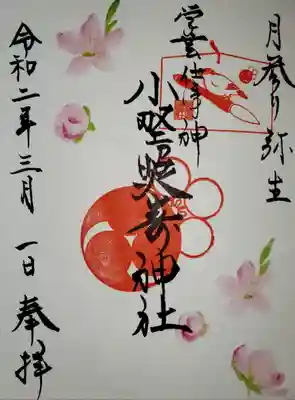 月参り 弥生
学芸仕事神
小野照崎神社
令和二年三月一日 奉拝